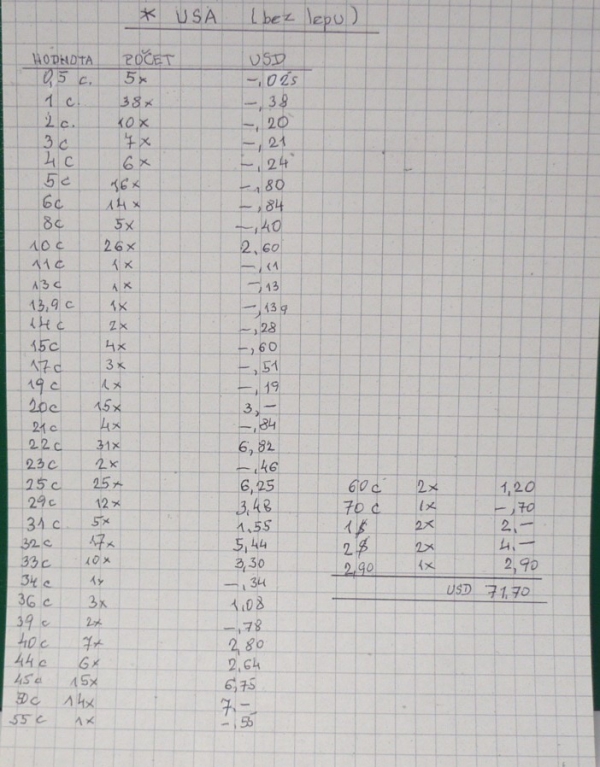 * USA (bez lepu)
HODNOTA POČET USD
0,5 c. 5x -,025
1 c. 38x -,38
2 c. 10x -,20
3c 7x -,21
4c 6x -,24
5c 16x -,80
6c 14x -,84
8c 5x -,40
10c 26x 2.60
11c 1x -,11
13c 1x -,13
13,9c 1x -,139
14c 2x -,28
15c 4x -,60
17c 3x -,51
19c 1x -,19
20c 15x 3,-
21c 4x -,84
22c 31x 6,82
23c 2x -,46
25c 25x 6,25
29c 12x 3,48
31c 5x 1.55
32c 17x 5,44
33c 10x 3,30
34c 1x -,34
36c 3x 1,08
39c 2x -,78
40c 7x 2,80
44c 6x 2,64
45c 15x 6,75
50c 14x 7,-
55c 1x -,55
60c 2x 1,20
70c 1x -,70
1$ 2x 2,-
2$ 2x 4,-
2,90 1x 2,90
USD 71,70